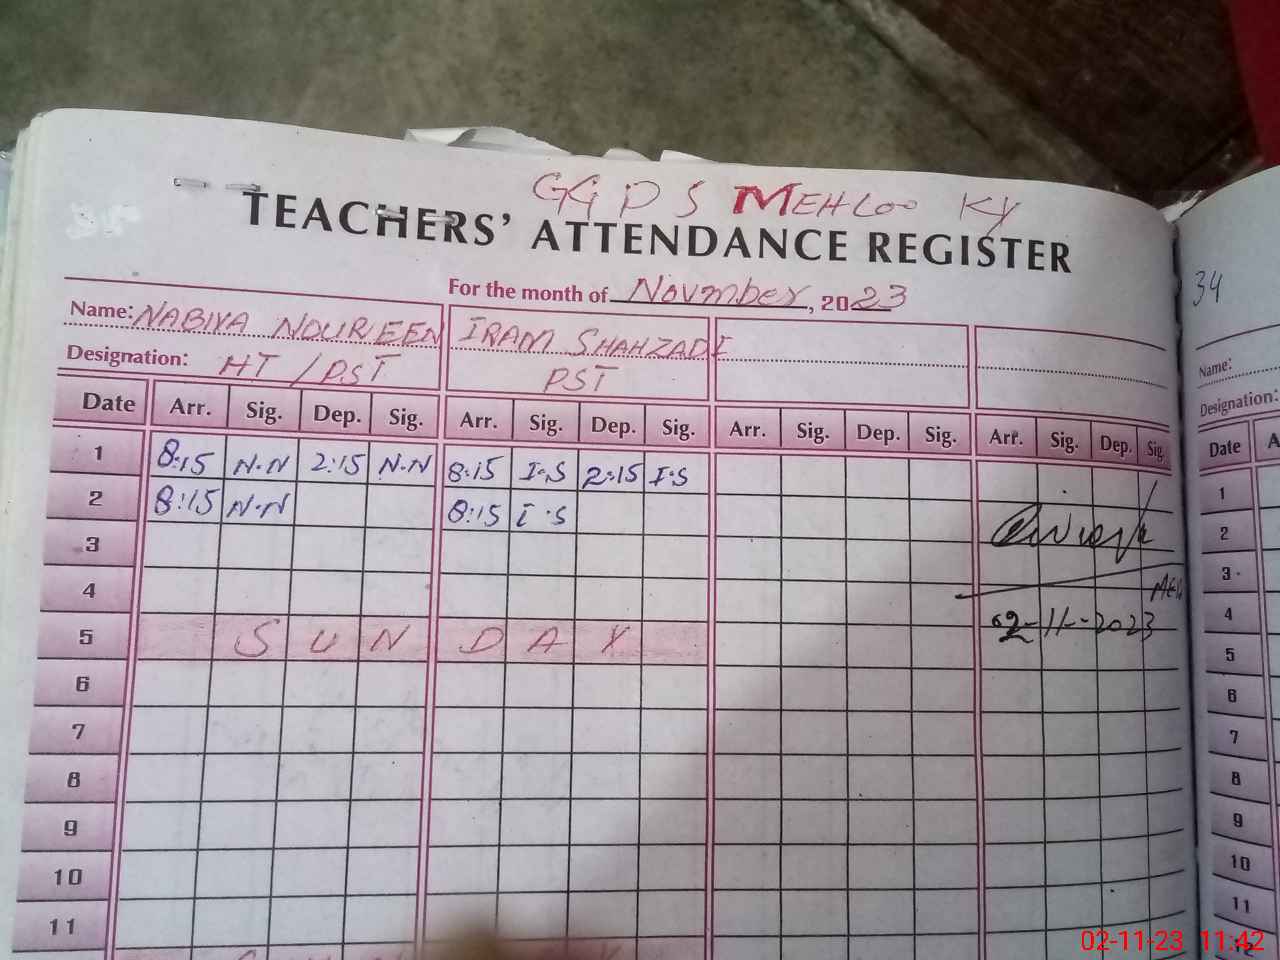 GGPS MEHLOO KY
TEACHERS' ATTENDANCE REGISTER
For the month of November, 2023
Name: NABIYA NOUREEN IRAM SHAHZADI
Designation: HT / PST PST
Date Arr. Sig. Dep. Sig. Arr. Sig. Dep. Sig. Arr. Sig. Dep. Sig. Arr. Sig. Dep. Sig.
1 8:15 N.N 2:15 N.N 8:15 I.S 2:15 I.S
2 8:15 N.N 8:15 I.S
3
4
5 SUNDAY
02-11-2023
6
7
8
9
10
11
34
Name:
Designation:
Date A
1
2
3
4
5
6
7
8
9
10
11
12
02-11-23 11:42